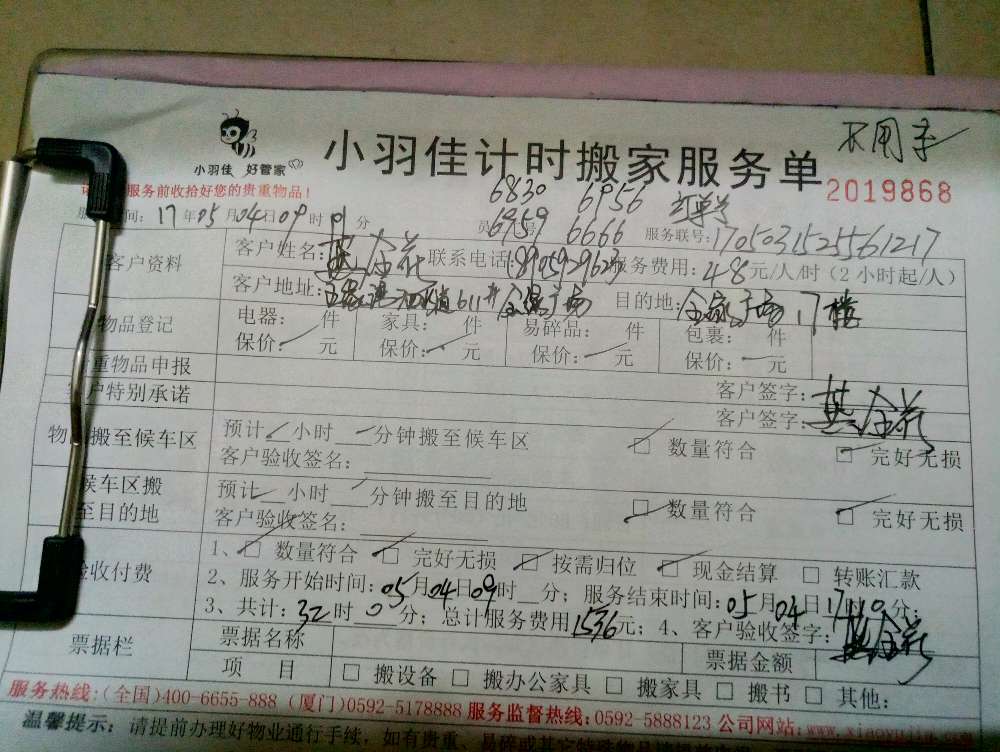 不用手
小羽佳 好管家
小羽佳计时搬家服务单
2019868
服务前收拾好您的贵重物品！
6830 6956
间：17年05月04日09时 分 员 6959 号 6666 服务联号：1705031525561217
客户资料 客户姓名： 联系电话 服务费用：48元/人/时（2小时起/人）
客户地址： 目的地： 17楼
物品登记 电器： 件 家具： 件 易碎品： 件 包裹： 件
保价： 元 保价： 元 保价： 元 保价： 元
重物品申报 客户签字：
户特别承诺 客户签字：
物 搬至候车区 预计 小时 分钟搬至候车区 数量符合 完好无损
客户验收签名：
候车区搬 预计 小时 分钟搬至目的地 数量符合 完好无损
至目的地 客户验收签名：
1、 数量符合 完好无损 按需归位 现金结算 转账汇款
验收付费 2、服务开始时间：05月04日09时 分；服务结束时间：05月04日17时 分；
3、共计：32时0分；总计服务费用1536元；4、客户验收签字：
票据栏 票据名称 票据金额
项 目 搬设备 搬办公家具 搬家具 搬书 其他：
服务热线：(全国)400-6655-888 (厦门)0592-5178888 服务监督热线：0592-5888123 公司网站：
温馨提示：请提前办理好物业通行手续，如有贵重、